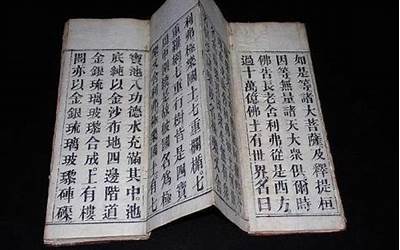 如是等諸大菩薩及釋提桓
因等無量諸天大衆俱爾時
佛告長老舍利弗從是西方
過十萬億佛土有世界名曰
利弗極樂國土七重欄楯七
重羅網七重行樹皆是四寶
圍繞是故彼國名為極
寶池八功德水充滿其中池
底純以金沙布地四邊階道
金銀琉璃玻瓈合成上有樓
閣亦以金銀琉璃玻瓈硨磲